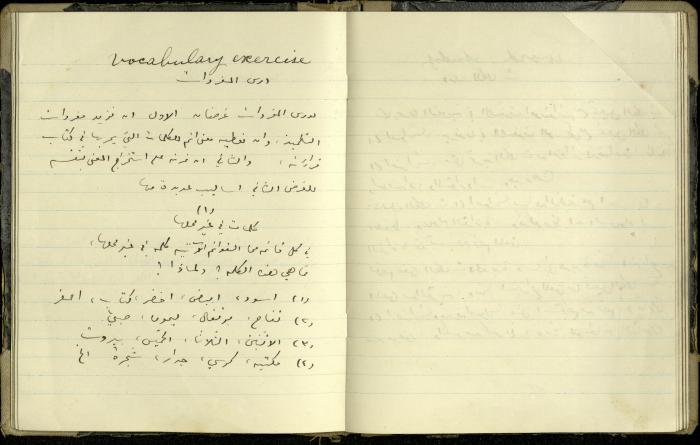 vocabulary exercise
درس المفردات
لدرس المفردات غرضان الاول ان نزيد مفردات
التلميذ، وان نعطيه معنى اتم للكلمات التي يمر بها في كتاب
قراءته، والثاني ان نمرنه على استخراج المعنى بنفسه
للغرض الثاني اساليب عديدة منها
(١)
كلمات في غير محلها
في كل قائمة من القوائم الآتية كلمة في غير محلها،
فما هي هذه الكلمة؟ ولماذا؟
(١) اسود، ابيض، اخضر، كتاب، اصفر
(٢) تفاح، برتقال، ليمون، صبي
(٣) الاثنين، الثلاثاء، الخميس، بيروت
(٤) مكتبة، كرسي، جدار، شجرة الخ